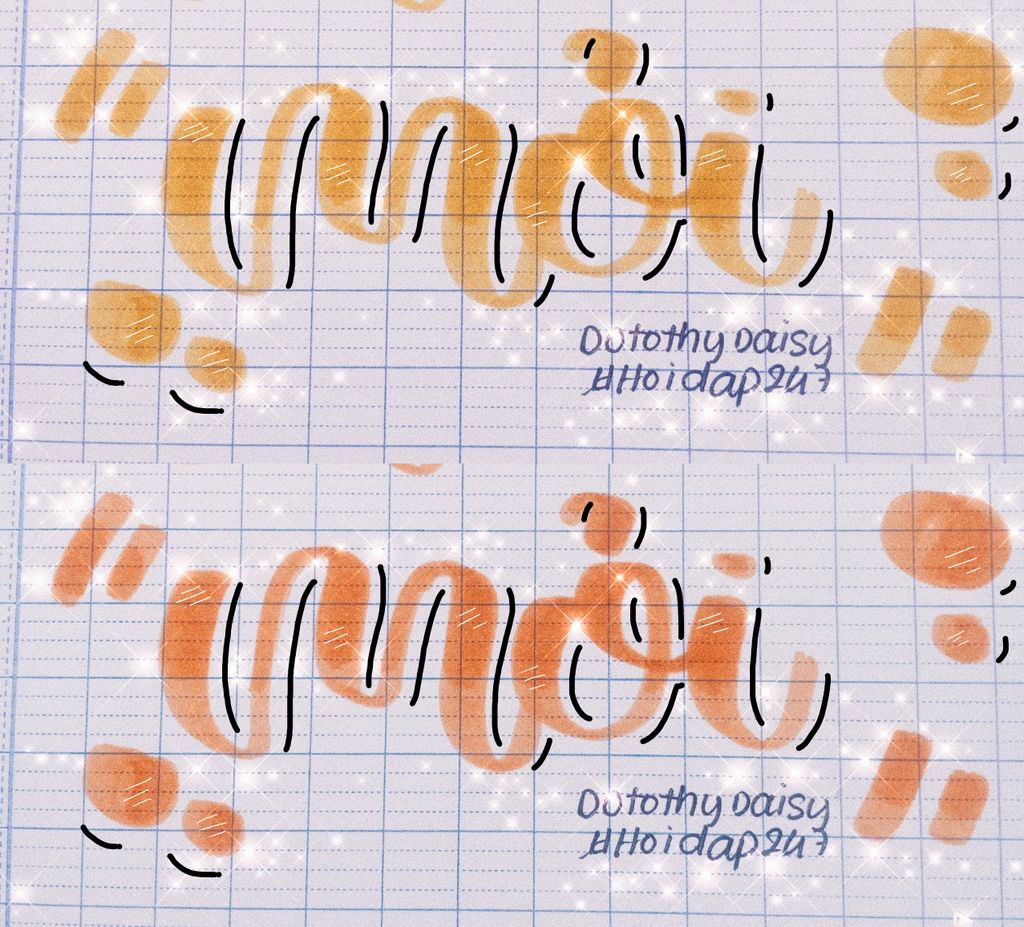 mỏi
Dorothy Daisy
#Hoidap247
mỏi
Dorothy Daisy
#Hoidap247